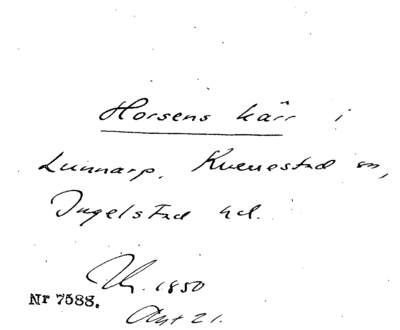 Horsens kärr i
Lunnarp, Kverrestad sn,
Ingelstad hd.
1850
Nr 7588.
Ant 21.